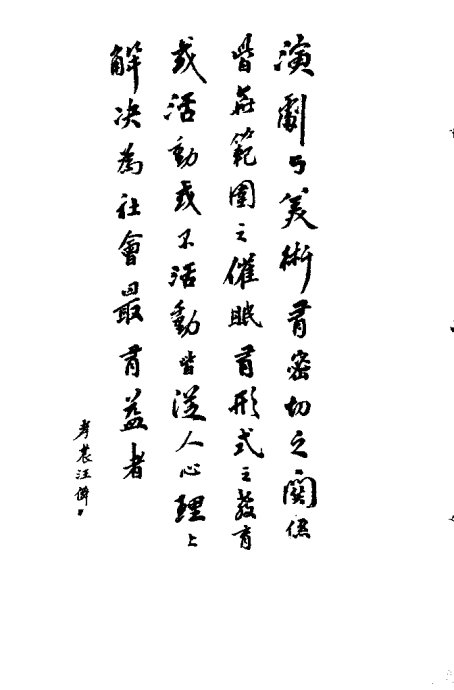 演劇与美術有密切之關係
皆無範圍之催眠有形式之教育
或活動或不活動皆從人心理上
解决為社會最有益者
孝農汪僲